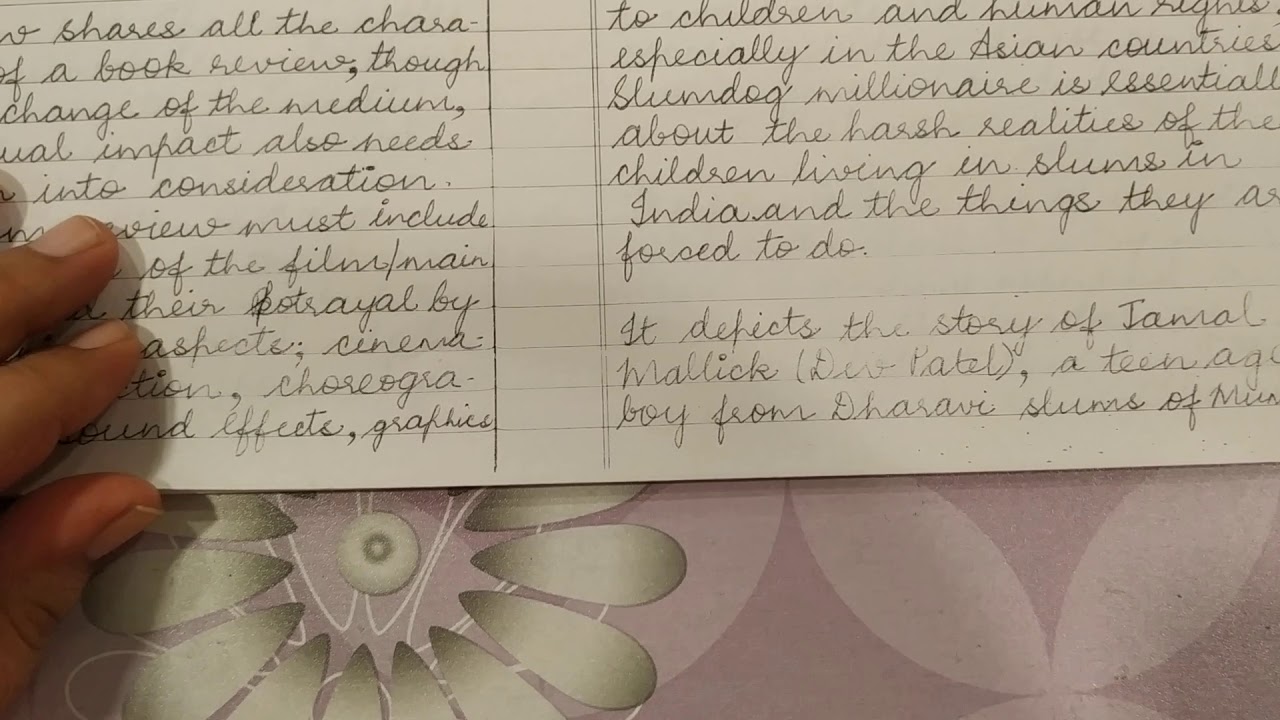 shares all the chara-
of a book review, though
change of the medium,
ual impact also needs
into consideration.
view must include
of the film/main
their potrayal by
aspects; cinema-
tion, choreogra-
ound effects, graphics
to children and human rights,
especially in the Asian countries
Slumdog millionaire is essentiall
about the harsh realities of the
children living in slums in
India and the things they ar
forced to do.
It depicts the story of Jamal
Mallick (Dev Patel), a teen age
boy from Dharavi slums of Mum